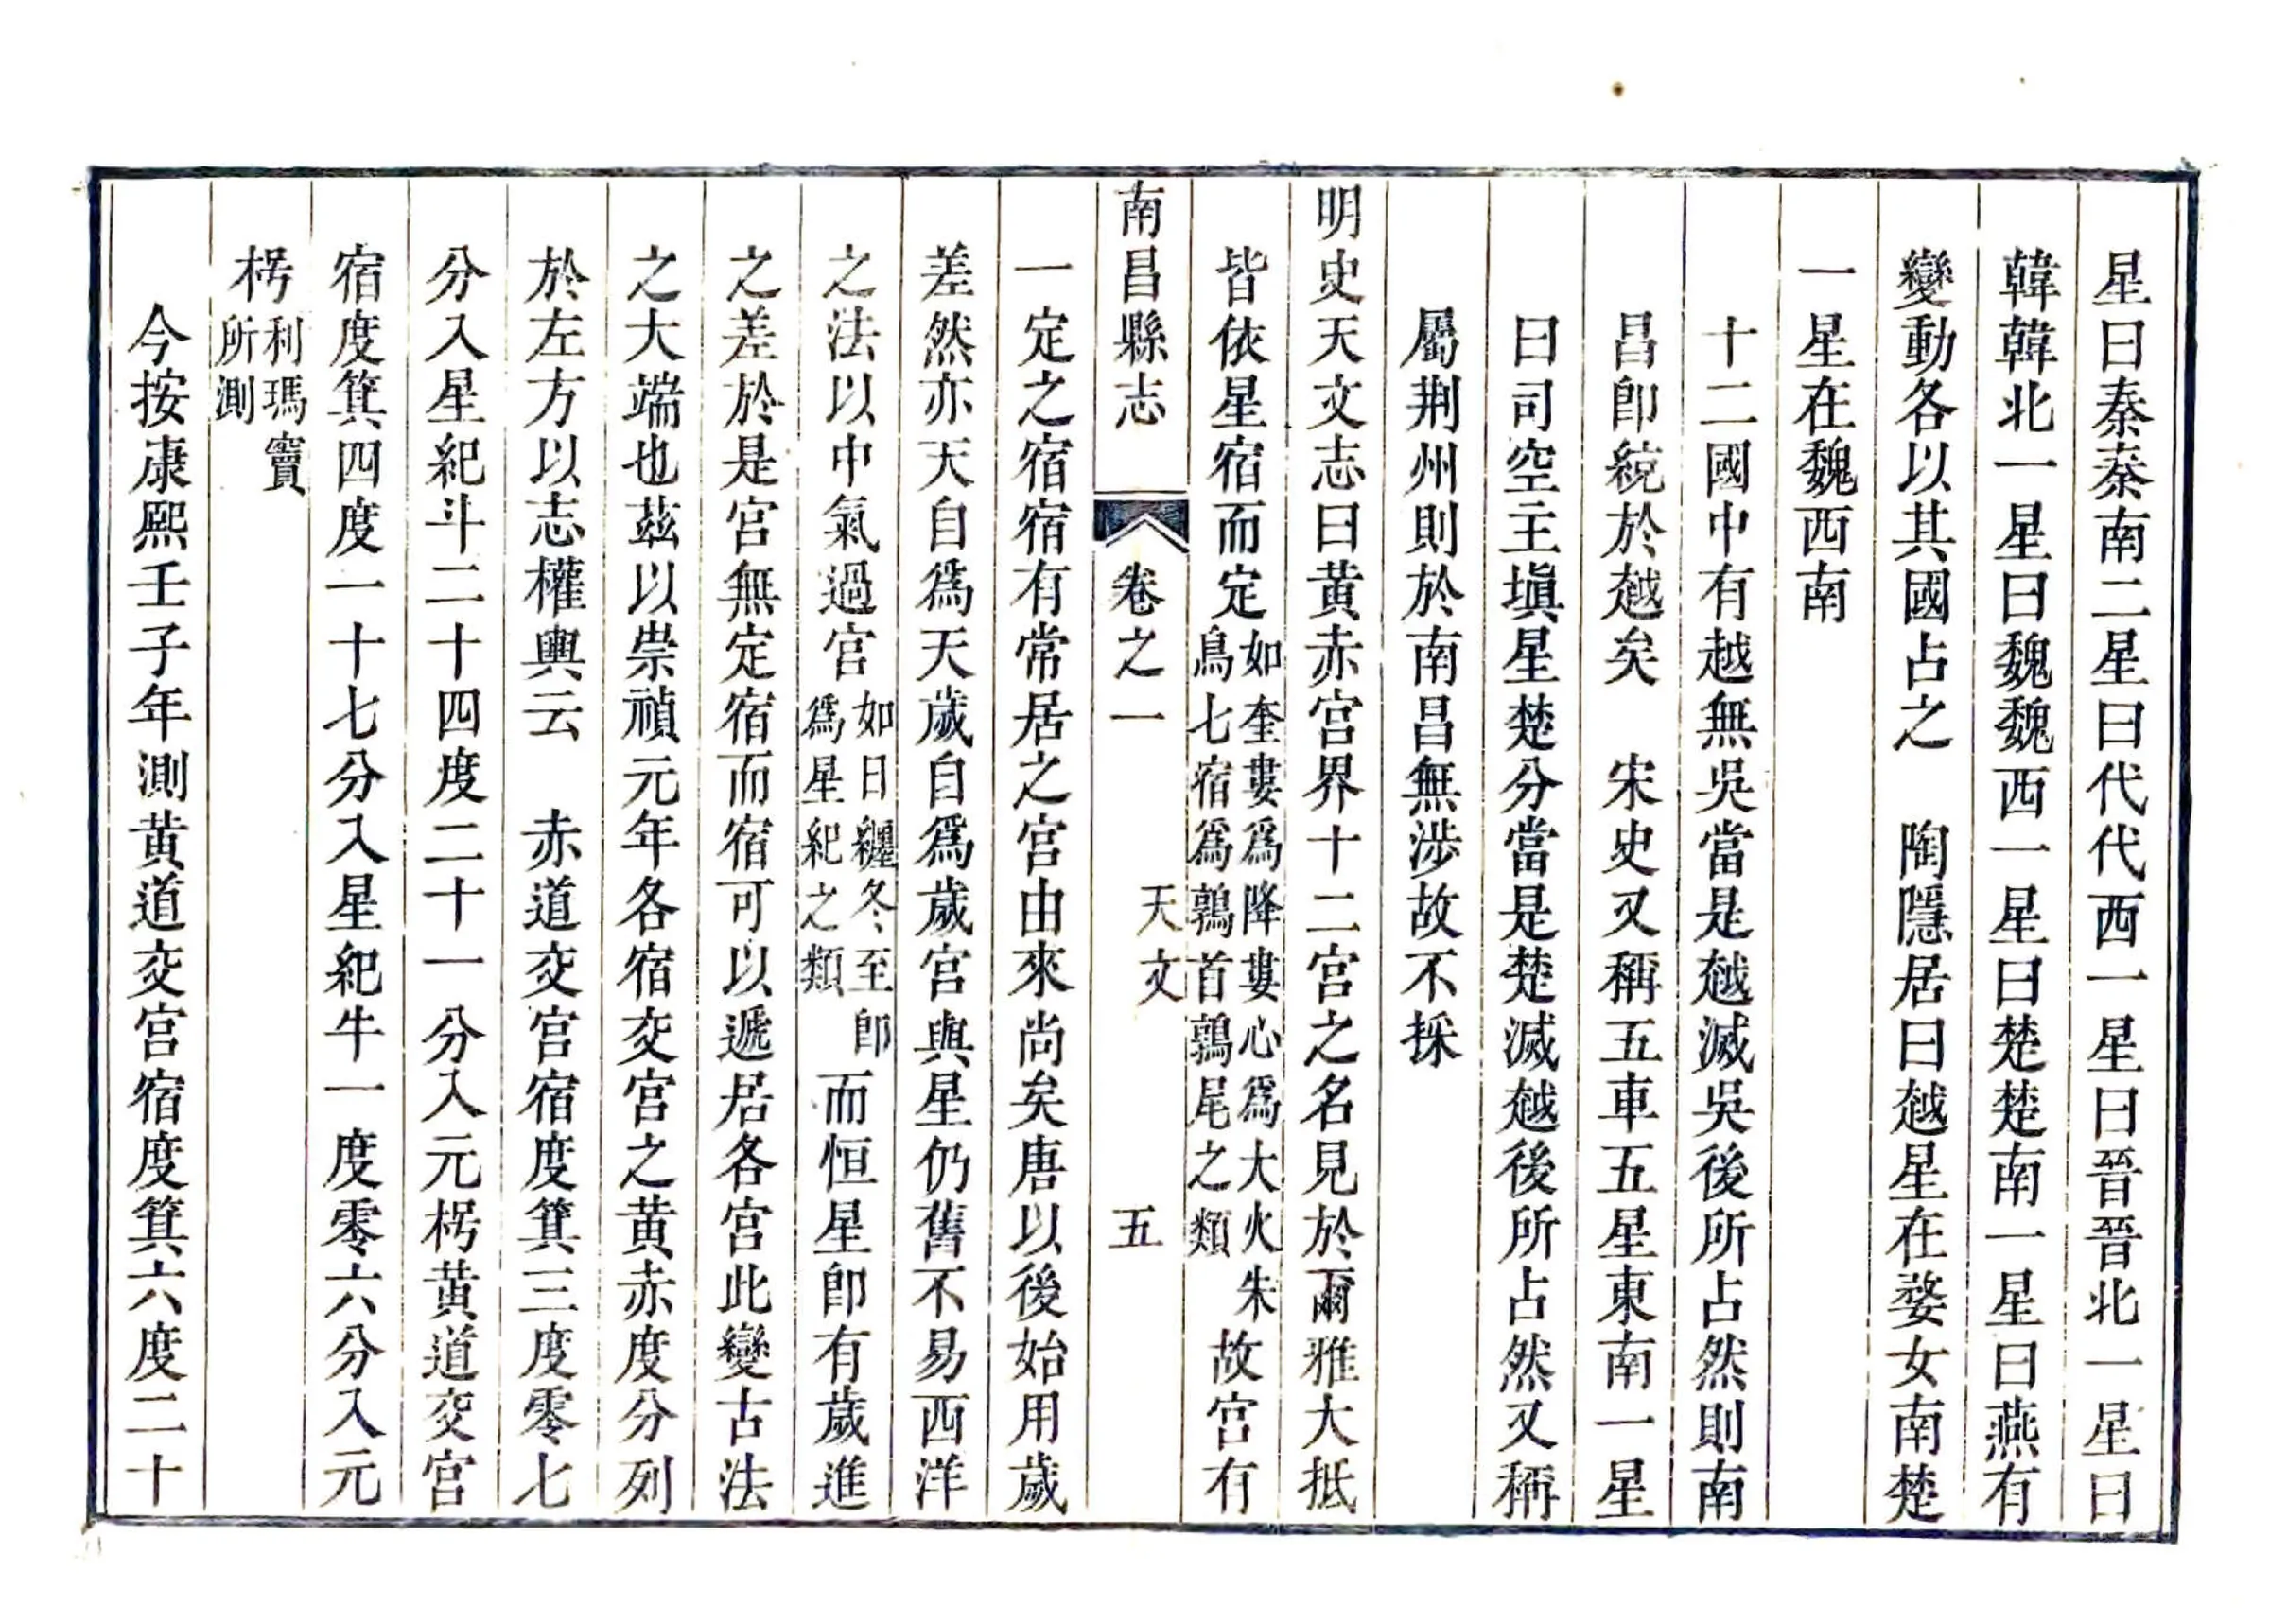 星曰秦秦南二星曰代代西一星曰晉晉北一星曰
韓韓北一星曰魏魏西一星曰楚楚南一星曰燕有
變動各以其國占之　陶隱居曰越星在婺女南楚
一星在魏西南
十二國中有越無吳當是越滅吳後所占然則南
昌卽統於越矣　宋史又稱五車五星東南一星
曰司空主塡星楚分當是楚滅越後所占然又稱
屬荆州則於南昌無涉故不採
明史天文志曰黃赤宮界十二宮之名見於爾雅大抵
皆依星宿而定如奎婁爲降婁心爲大火朱鳥七宿爲鶉首鶉尾之類故宮有
南昌縣志　卷之一　天文　五
一定之宿宿有常居之宮由來尚矣唐以後始用歲
差然亦天自爲天歲自爲歲宮與星仍舊不易西洋
之法以中氣過宮如日纏冬至卽爲星紀之類而恒星卽有歲進
之差於是宮無定宿而宿可以遞居各宮此變古法
之大端也茲以崇禎元年各宿交宮之黃赤度分列
於左方以志權輿云　赤道交宮宿度箕三度零七
分入星紀斗二十四度二十一分入元枵黃道交宮
宿度箕四度一十七分入星紀牛一度零六分入元
枵利瑪竇所測
今按康熙壬子年測黃道交宮宿度箕六度二十